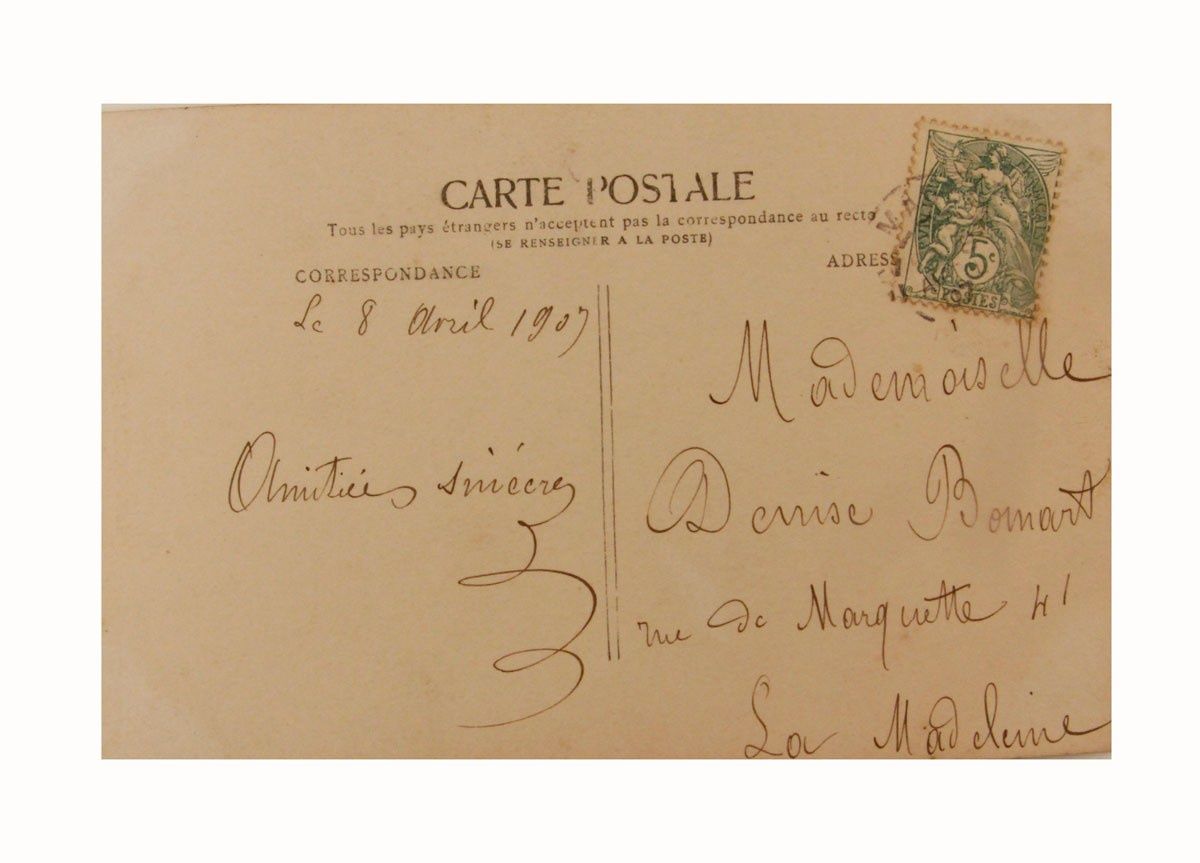 CARTE POSTALE
Tous les pays étrangers n'acceptent pas la correspondance au recto
(SE RENSEIGNER A LA POSTE)
CORRESPONDANCE
Le 8 Avril 1907
Amitiées sincères
ADRESS
5c
POSTES
Mademoiselle
Denise Bomart
rue de Marquette 41
La Madeleine